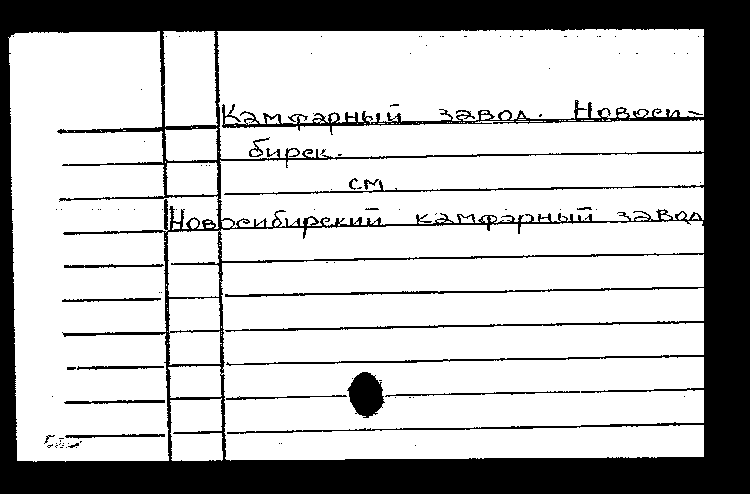 Камфарный завод. Новоси-
бирск.
см.
Новосибирский камфарный завод